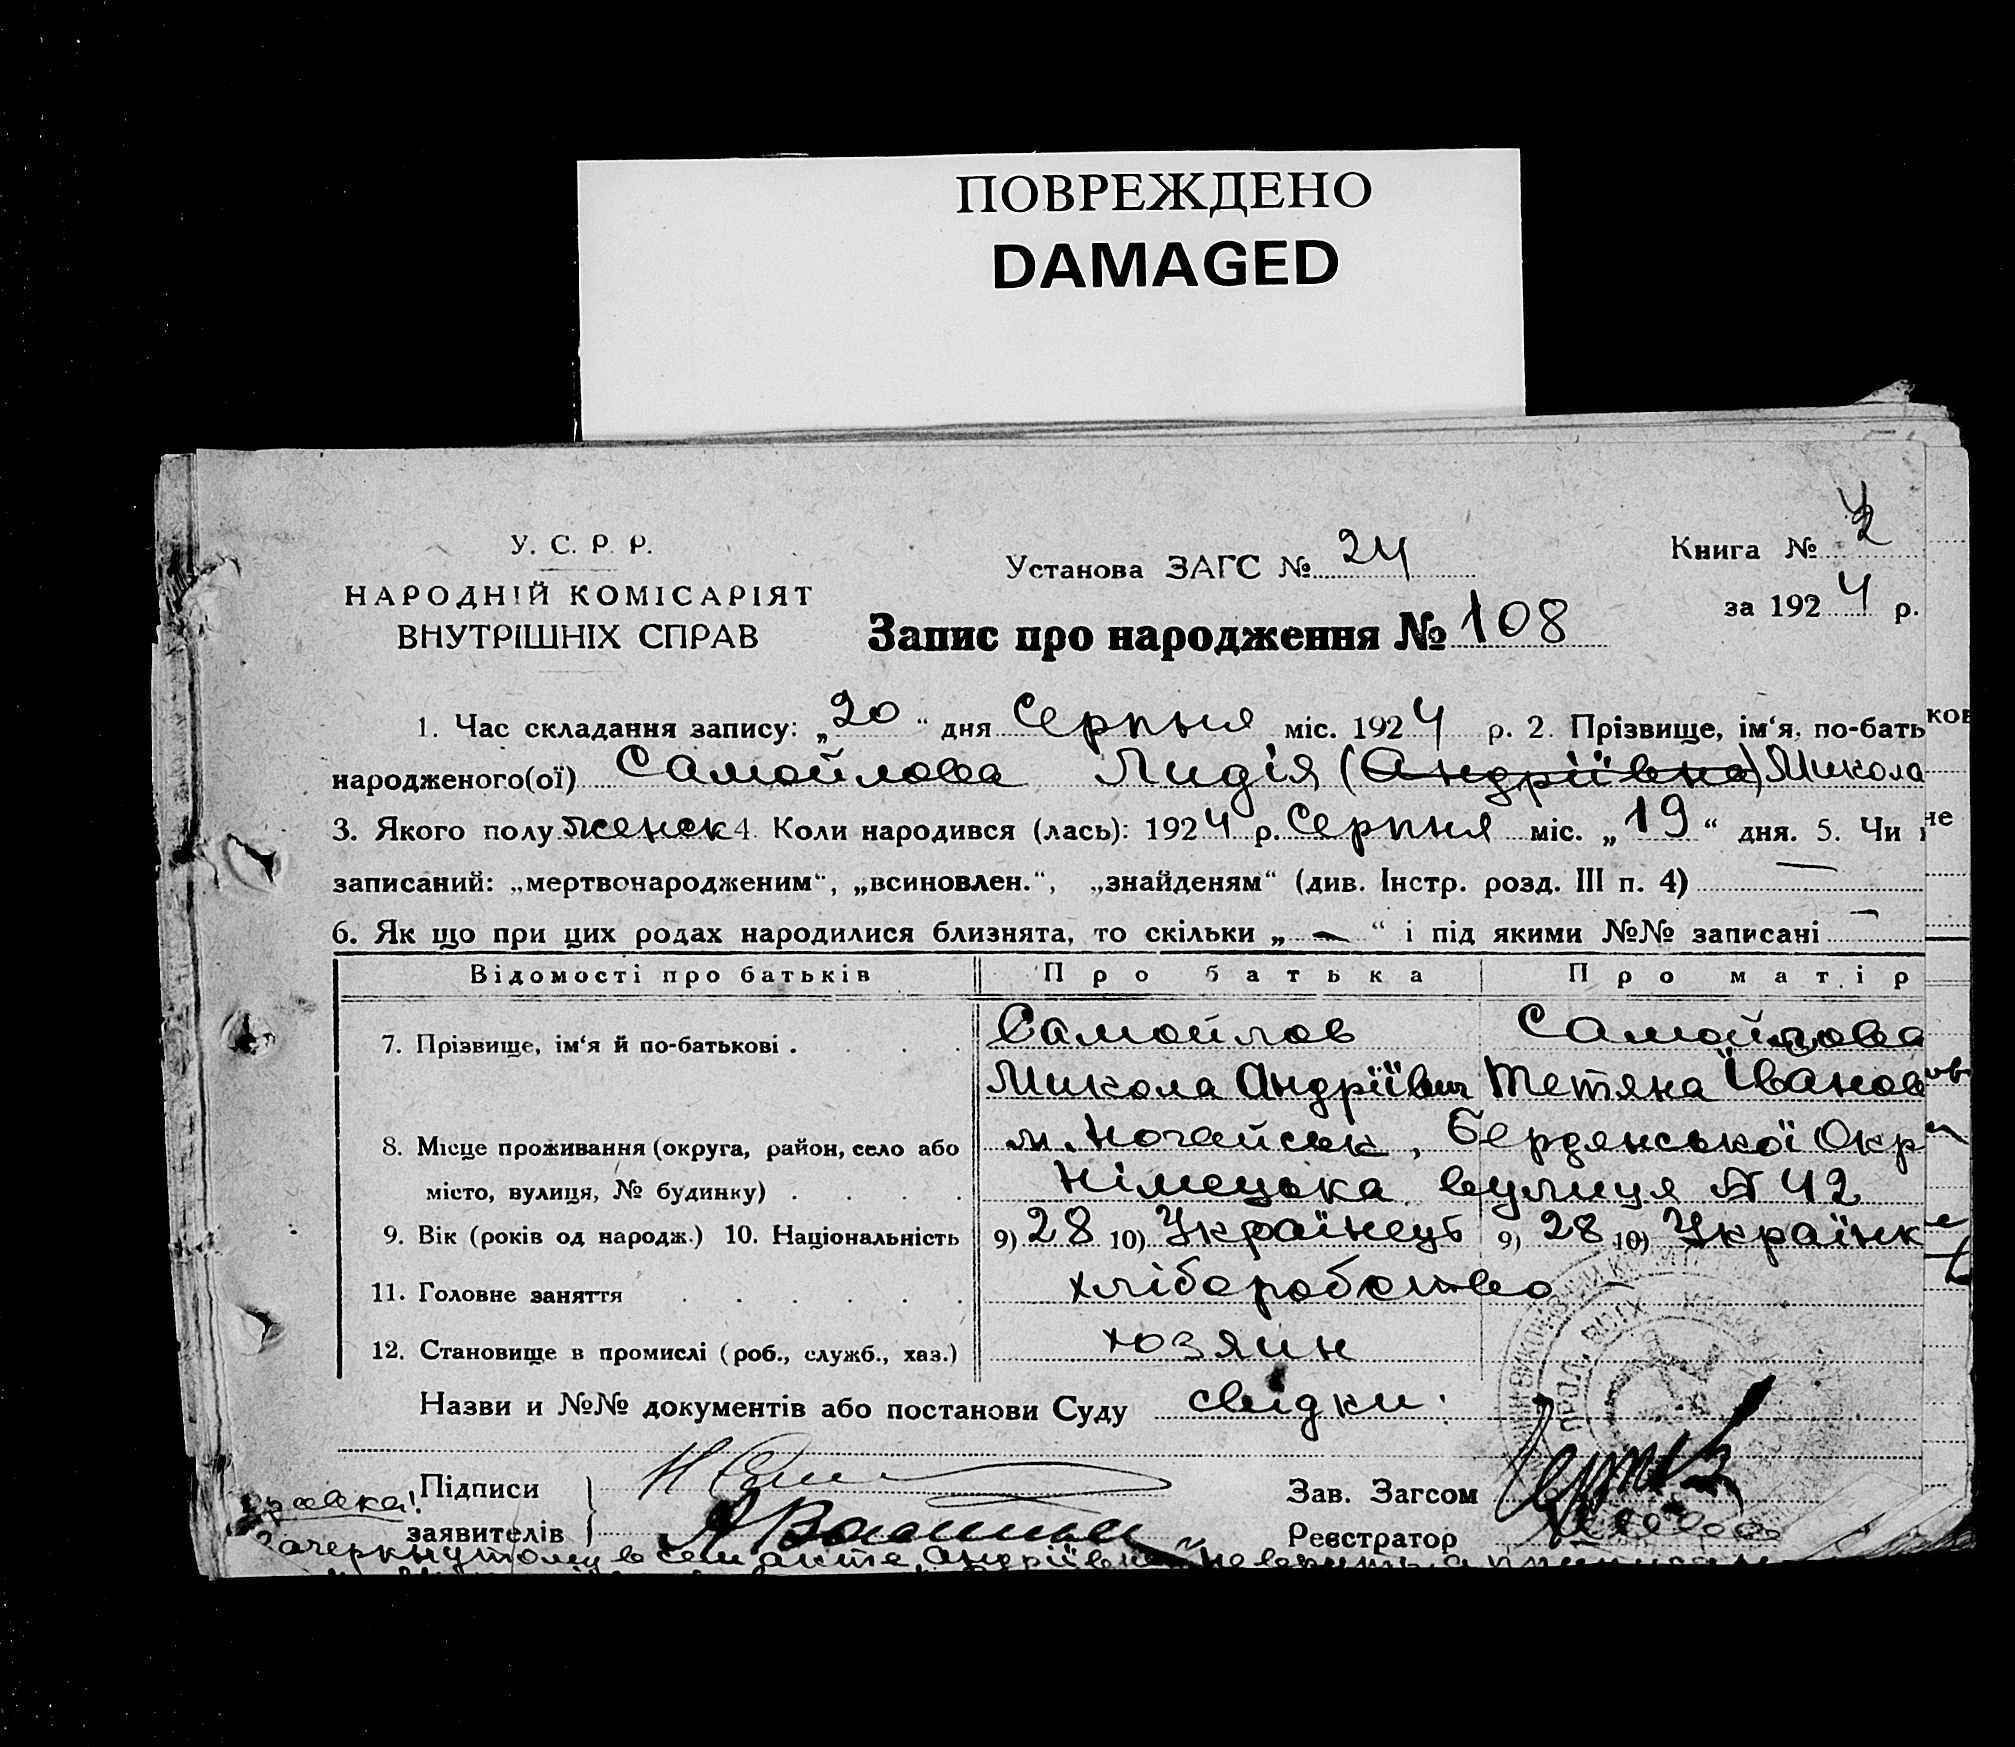 ПОВРЕЖДЕНО
DAMAGED
У. С. Р. Р.
НАРОДНІЙ КОМІСАРІЯТ
ВНУТРІШНІХ СПРАВ
Установа ЗАГС № 24
Книга № 2
за 1924 р.
Запис про народження № 108
1. Час складання запису: „20“ дня Серпня міс. 1924 р. 2. Прізвище, ім‘я, по-бать
ков
народженого(ої) Самойлова Лидія (Андріївна) Микола
3. Якого полу женск 4. Коли народився (лась): 1924 р. Серпня міс. „19“ дня. 5. Чи
не
записаний: „мертвонародженим“, „всиновлен.“, „знайденям“ (див. Інстр. розд. III п. 4) —
6. Як що при цих родах народилися близнята, то скільки „—“ і під якими №№ записані —
Відомості про батьків Про батька Про матір
7. Прізвище, ім‘я й по-батькові . Самойлов Самойлова
Микола Андрїївич Тетяна Іванов
8. Місце проживання (округа, район, село або м. Ногайськ, Бердянської Окр
місто, вулиця, № будинку) Німецька вулиця № 42
9. Вік (років од народж.) 10. Національність 9) 28 10) Українець 9) 28 10) Українк
11. Головне заняття хліборобство
12. Становище в промислі (роб., служб., хаз.) хозяин
Назви и №№ документів або постанови Суду свідки:
Підписи
заявителів
Зав. Загсом
Реєстратор
Зачеркнутому в сем акте „Андріївна" не верить а